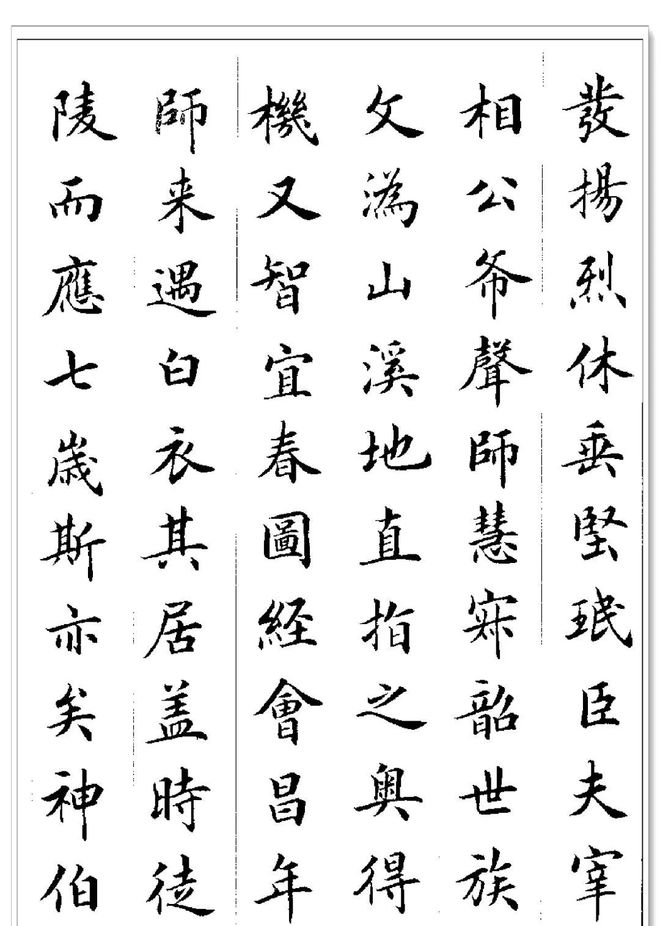 發揚烈休垂堅珉臣夫宰
相公爷聲師慧寂韶世族
父溈山溪地直指之奥得
機又智宜春圖経會昌年
師来遇白衣其居盖時徒
陵而應七歳斯亦矣神伯